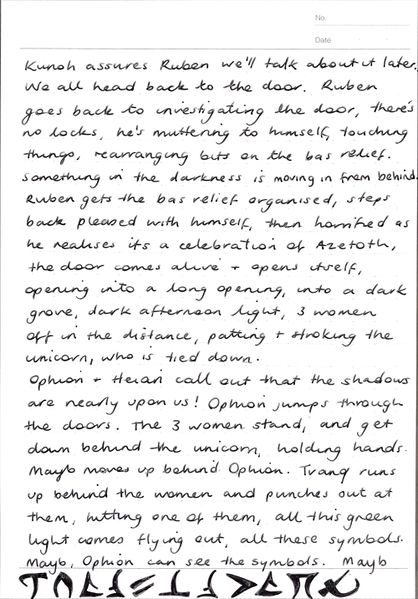 No.
Date
Kunoh assures Ruben we'll talk about it later.
We all head back to the door. Ruben
goes back to investigating the door, there's
no locks, he's muttering to himself, touching
things, rearranging bits on the bas relief.
Something in the darkness is moving in from behind.
Ruben gets the bas relief organised, steps
back pleased with himself, then horrified as
he realises its a celebration of Azetoth,
the door comes alive + opens itself,
opening into a long opening, into a dark
grove, dark afternoon light, 3 women
off in the distance, patting + stroking the
unicorn, who is tied down.
Ophion + call out that the shadows
are nearly upon us! Ophion jumps through
the doors. The 3 women stand, and get
down behind the unicorn, holding hands.
Mayb moves up behind Ophion. Tranq runs
up behind the women and punches out at
them, hitting one of them, all this green
light comes flying out, all these symbols.
Mayb, Ophion can see the symbols. Mayb